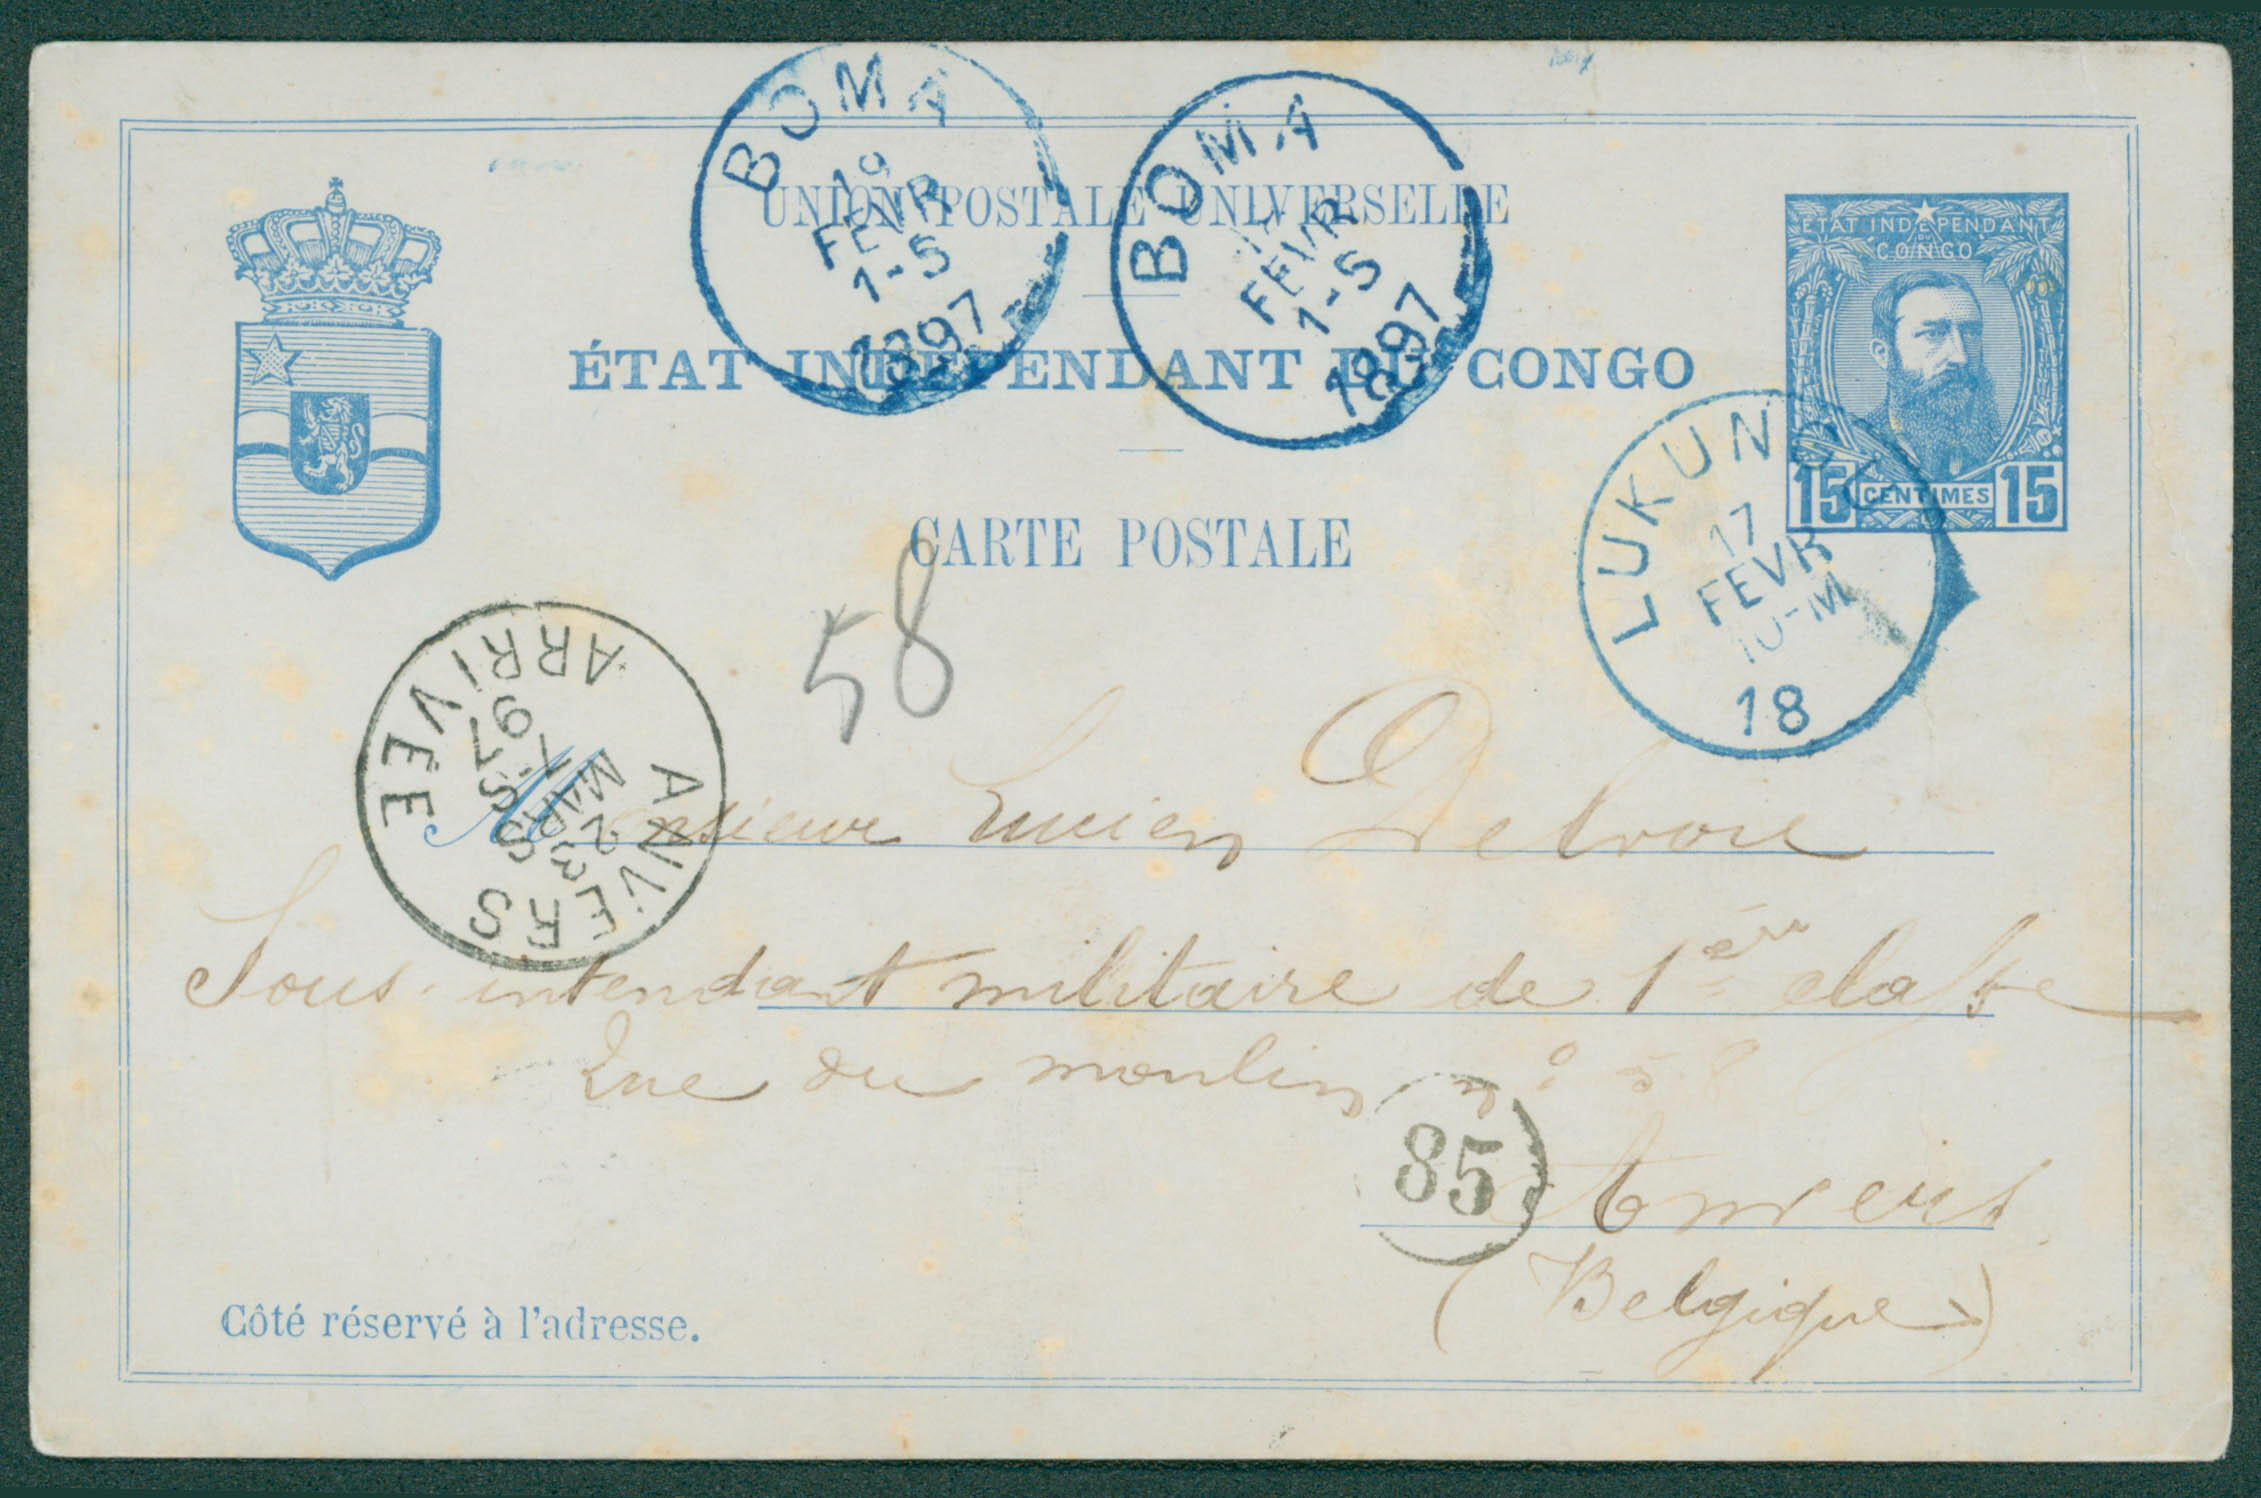 BOMA
19
FEVR
1-5
1897
BOMA
FEVR
1-5
1897
UNION POSTALE UNIVERSELLE
ÉTAT INDÉPENDANT DU CONGO
CARTE POSTALE
ÉTAT INDÉPENDANT
DU
CONGO
15 CENTIMES 15
LUKUNGU
17
FEVR
10-M
18
58
ANVERS
23
MARS
7-S
97
ARRIVÉE
Monsieur Lucien
Sous-intendant militaire de 1ère classe
Rue du moulin n° 58
85
Anvers
(Belgique)
Côté réservé à l'adresse.